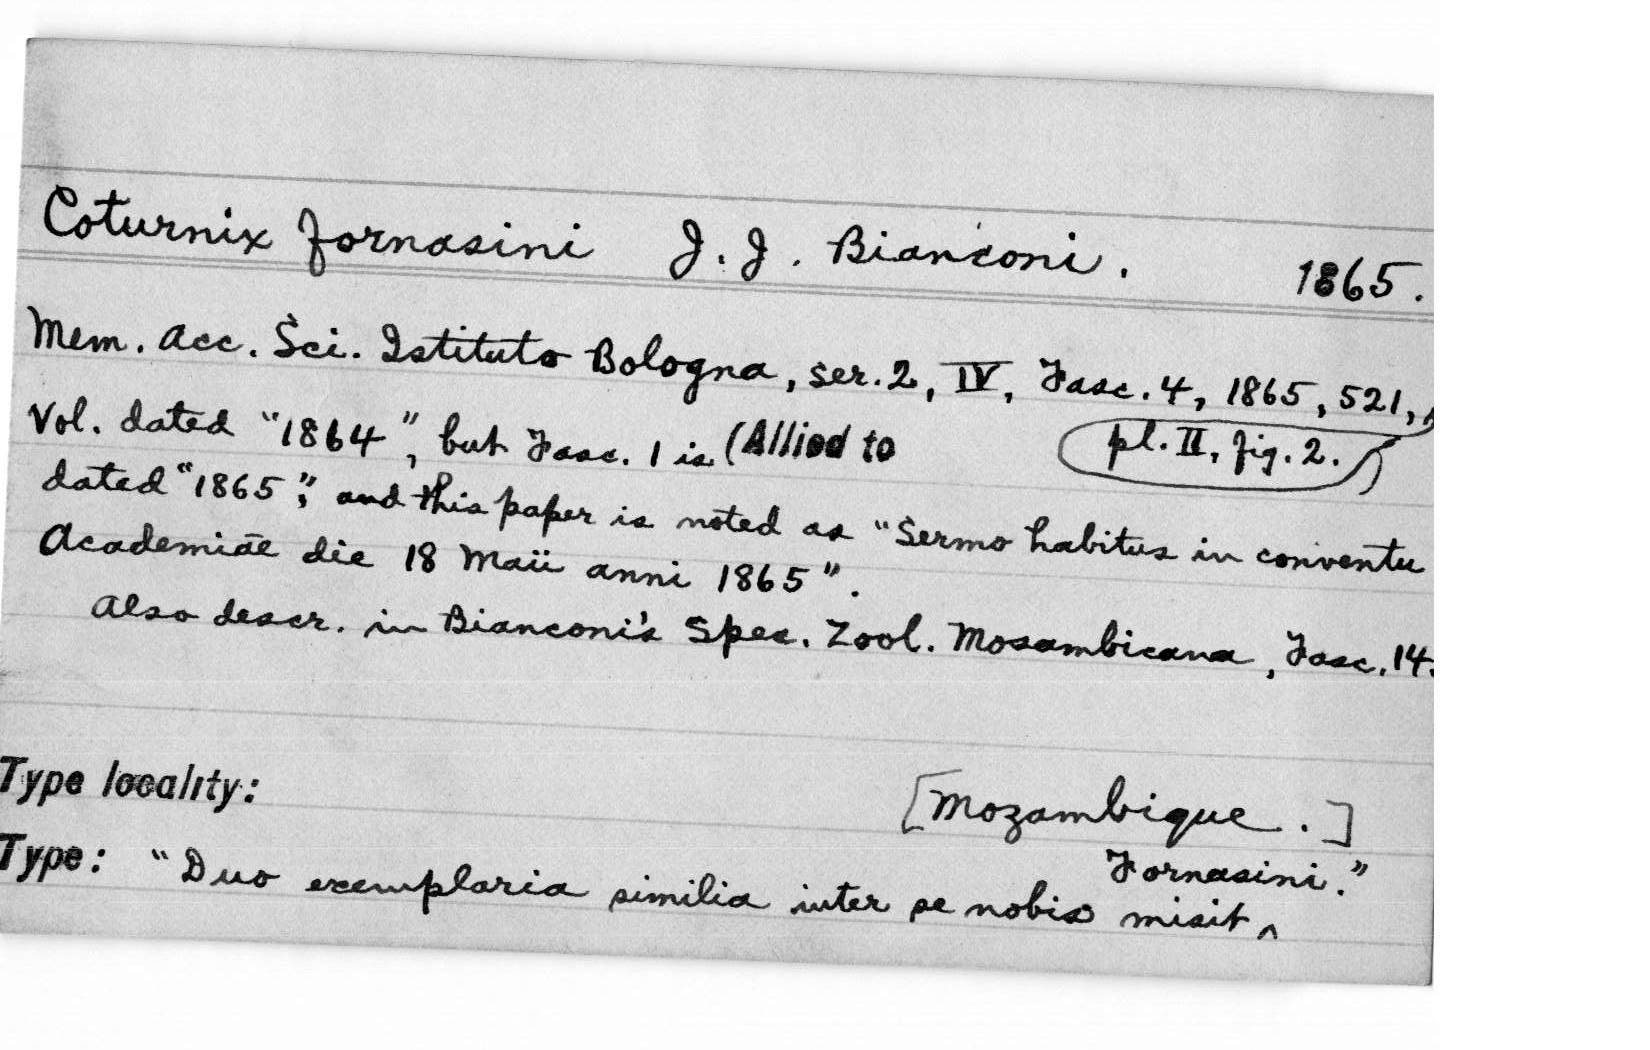 Coturnix fornasini J. J. Bianconi. 1865.
Mem. Acc. Sci. Istituto Bologna, ser. 2, IV, Fasc. 4, 1865, 521,
pl. II, fig. 2.
Vol. dated "1864", but Fasc. 1 is (Allied to
dated "1865", and this paper is noted as "Sermo habitus in conventu
Academiae die 18 Maii anni 1865".
Also descr. in Bianconi's Spec. Zool. Mosambicana, Fasc. 14.
Type locality: [Mozambique.]
Type: "Duo exemplaria similia inter se nobis misit ^
Fornasini."